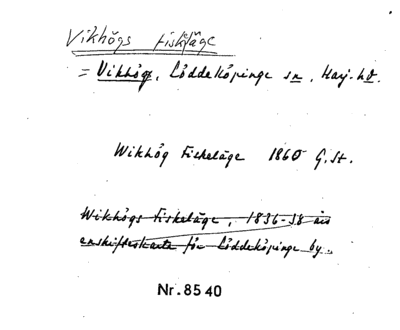 Vikhögs fiskeläge
= Vikhög, Löddeköpinge sn, Harj. hd.
Wikhög Fiskeläge 1860 G.St.
Wikhögs Fiskeläge, 1836-38 års
enskifteskarta för Löddeköpinge by.
Nr. 8540